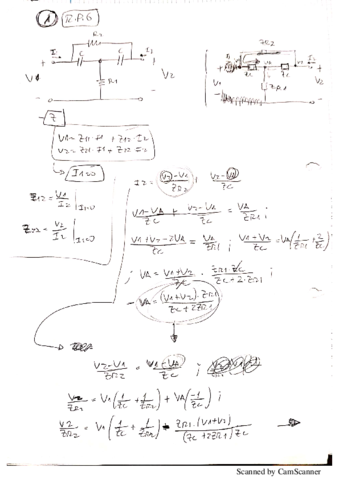 ① II.P.6
R2
I1 C C I2
V1 R1 V2
ZR2
ZC ZC
V1 ZR1 V2
Z
V1 = Z11·I1 + Z12·I2
V2 = Z21·I1 + Z22·I2
I1=0
Z12 = V1/I2 |I1=0
Z22 = V2/I2 |I1=0
I2 = (V2-V1)/ZR2 + (V2-VA)/ZC
(V1-VA)/ZC + (V2-VA)/ZC = VA/ZR1 ;
(V1+V2-2VA)/ZC = VA/ZR1 ; (V1+V2)/ZC = VA(1/ZR1 + 2/ZC)
; VA = (V1+V2)/ZC · (ZR1·ZC)/(ZC+2·ZR1) ;
VA = ((V1+V2)·ZR1)/(ZC+2ZR1)
(V2-V1)/ZR2 = (V1-VA)/ZC ;
V2/ZR2 = V1(1/ZC + 1/ZR2) + VA(-1/ZC) ;
V2/ZR2 = V1(1/ZC + 1/ZR2) - (ZR1·(V1+V2))/((ZC+2ZR1)ZC)
Scanned by CamScanner